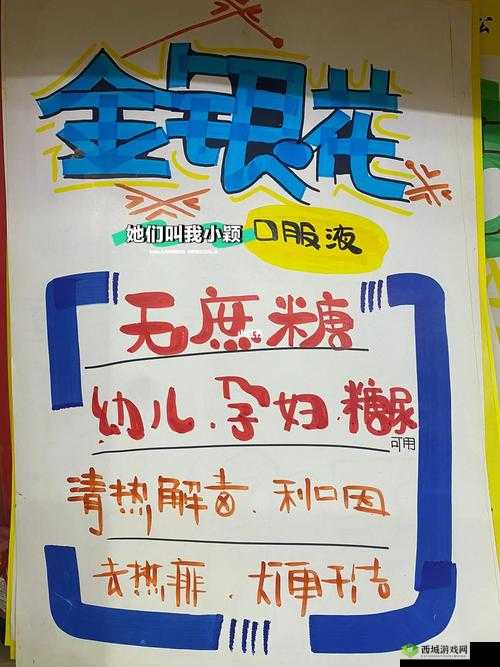 金银花
她们叫我小颖 口服液
无庶糖
幼儿.孕妇.糖尿
可用
清热解毒.利咽
去热痱.大便干结
西城游戏网